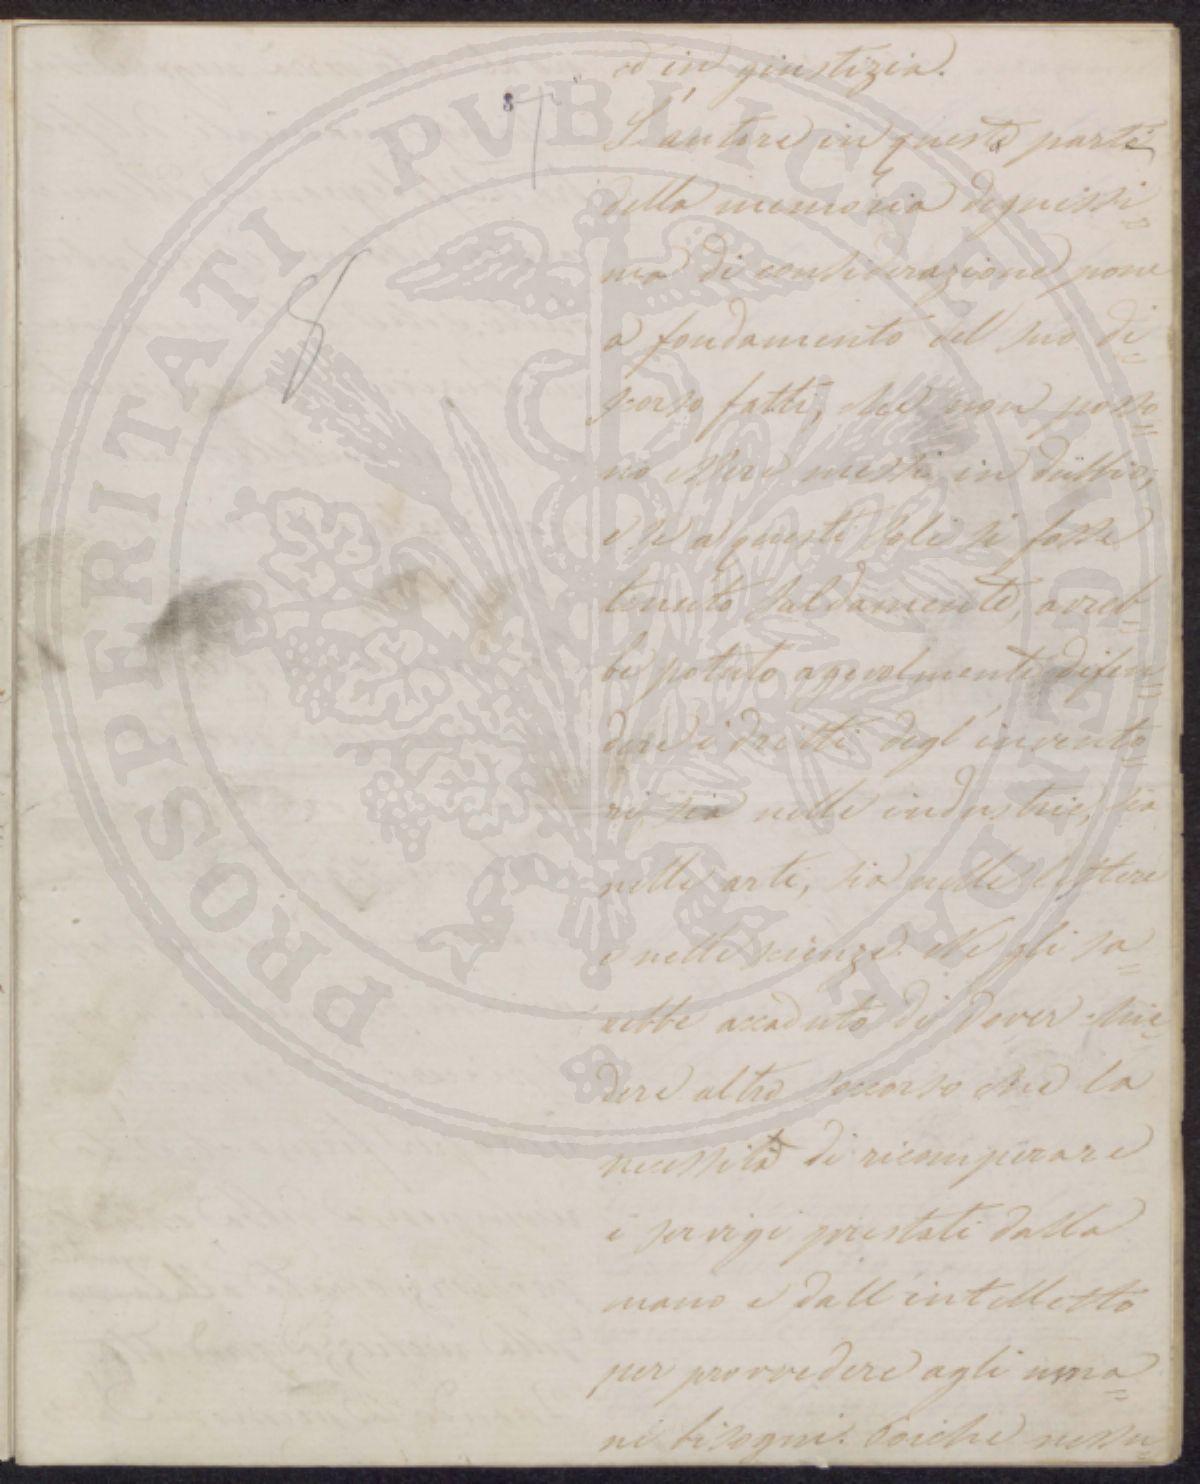 ed in giustizia.
8
L'autore in questa parte
della memoria degnissi=
ma di considerazione pone
a fondamento del suo di=
scorso fatti, che non posso=
no essere messi in dubbio,
e se a questi soli si fosse
tenuto saldamente, avreb=
be potuto agevolmente difen=
dere i dritti degl'invento=
ri, sia nelle industrie, sia
nelle arti, sia nelle lettere
e nelle scienze. Nè gli sa=
rebbe accaduto di dover chie=
dere altro soccorso che la
necessità di ricomperare
i servigi prestati dalla
mano e dall'intelletto
per provvedere agli uma=
ni bisogni. Poichè nessu=
PROSPERITATI PVBLICAE AVGENDAE